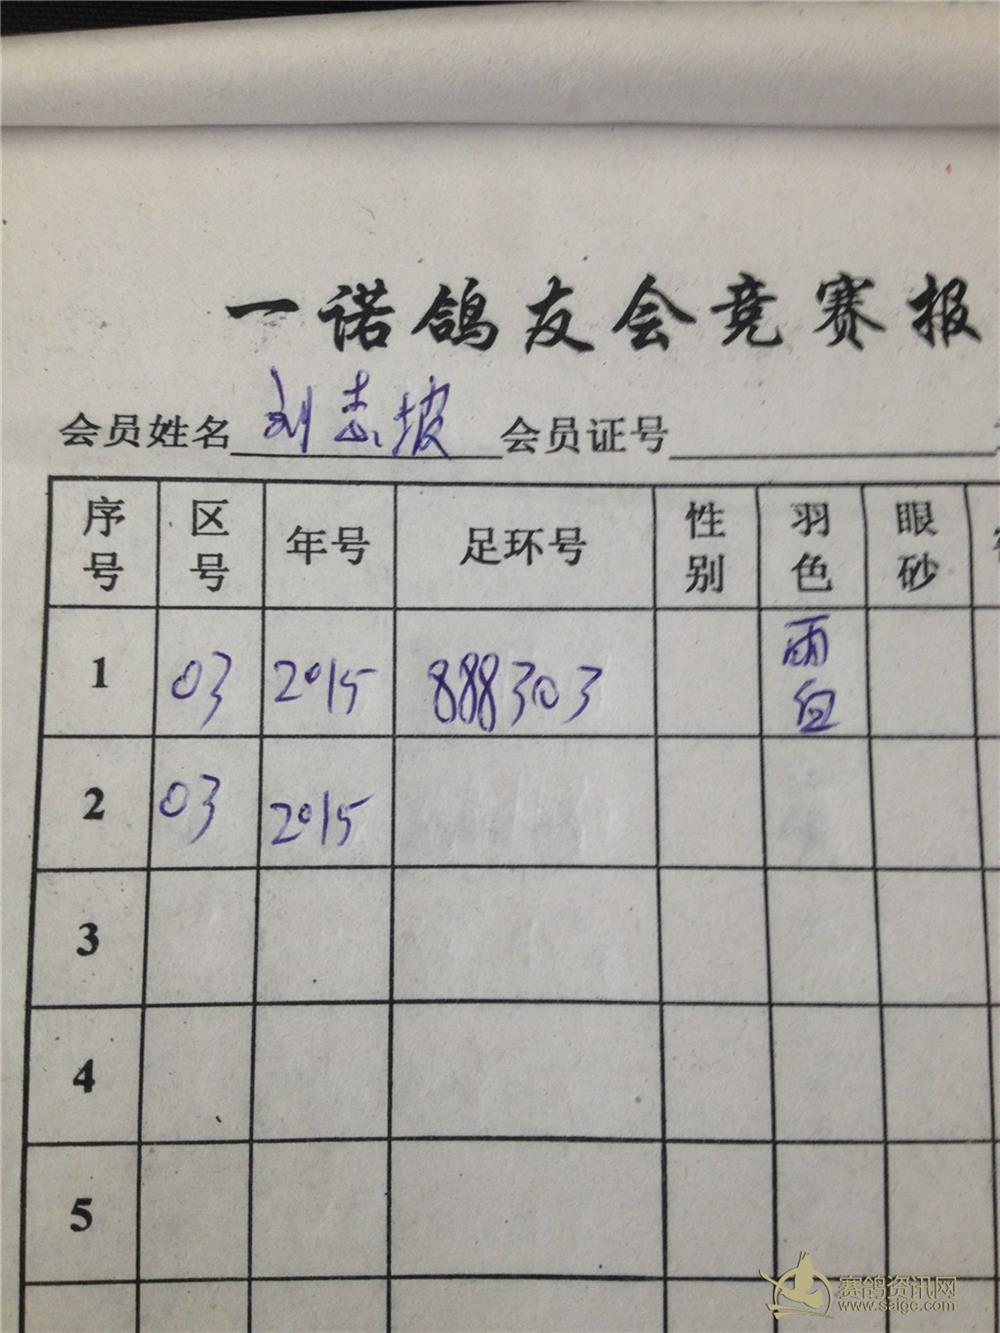 一诺鸽友会竞赛报
会员姓名 刘志坡 会员证号
序号 区号 年号 足环号 性别 羽色 眼砂
1 03 2015 888303 雨白
2 03 2015
3
4
5
赛鸽资讯网
www.saigc.com